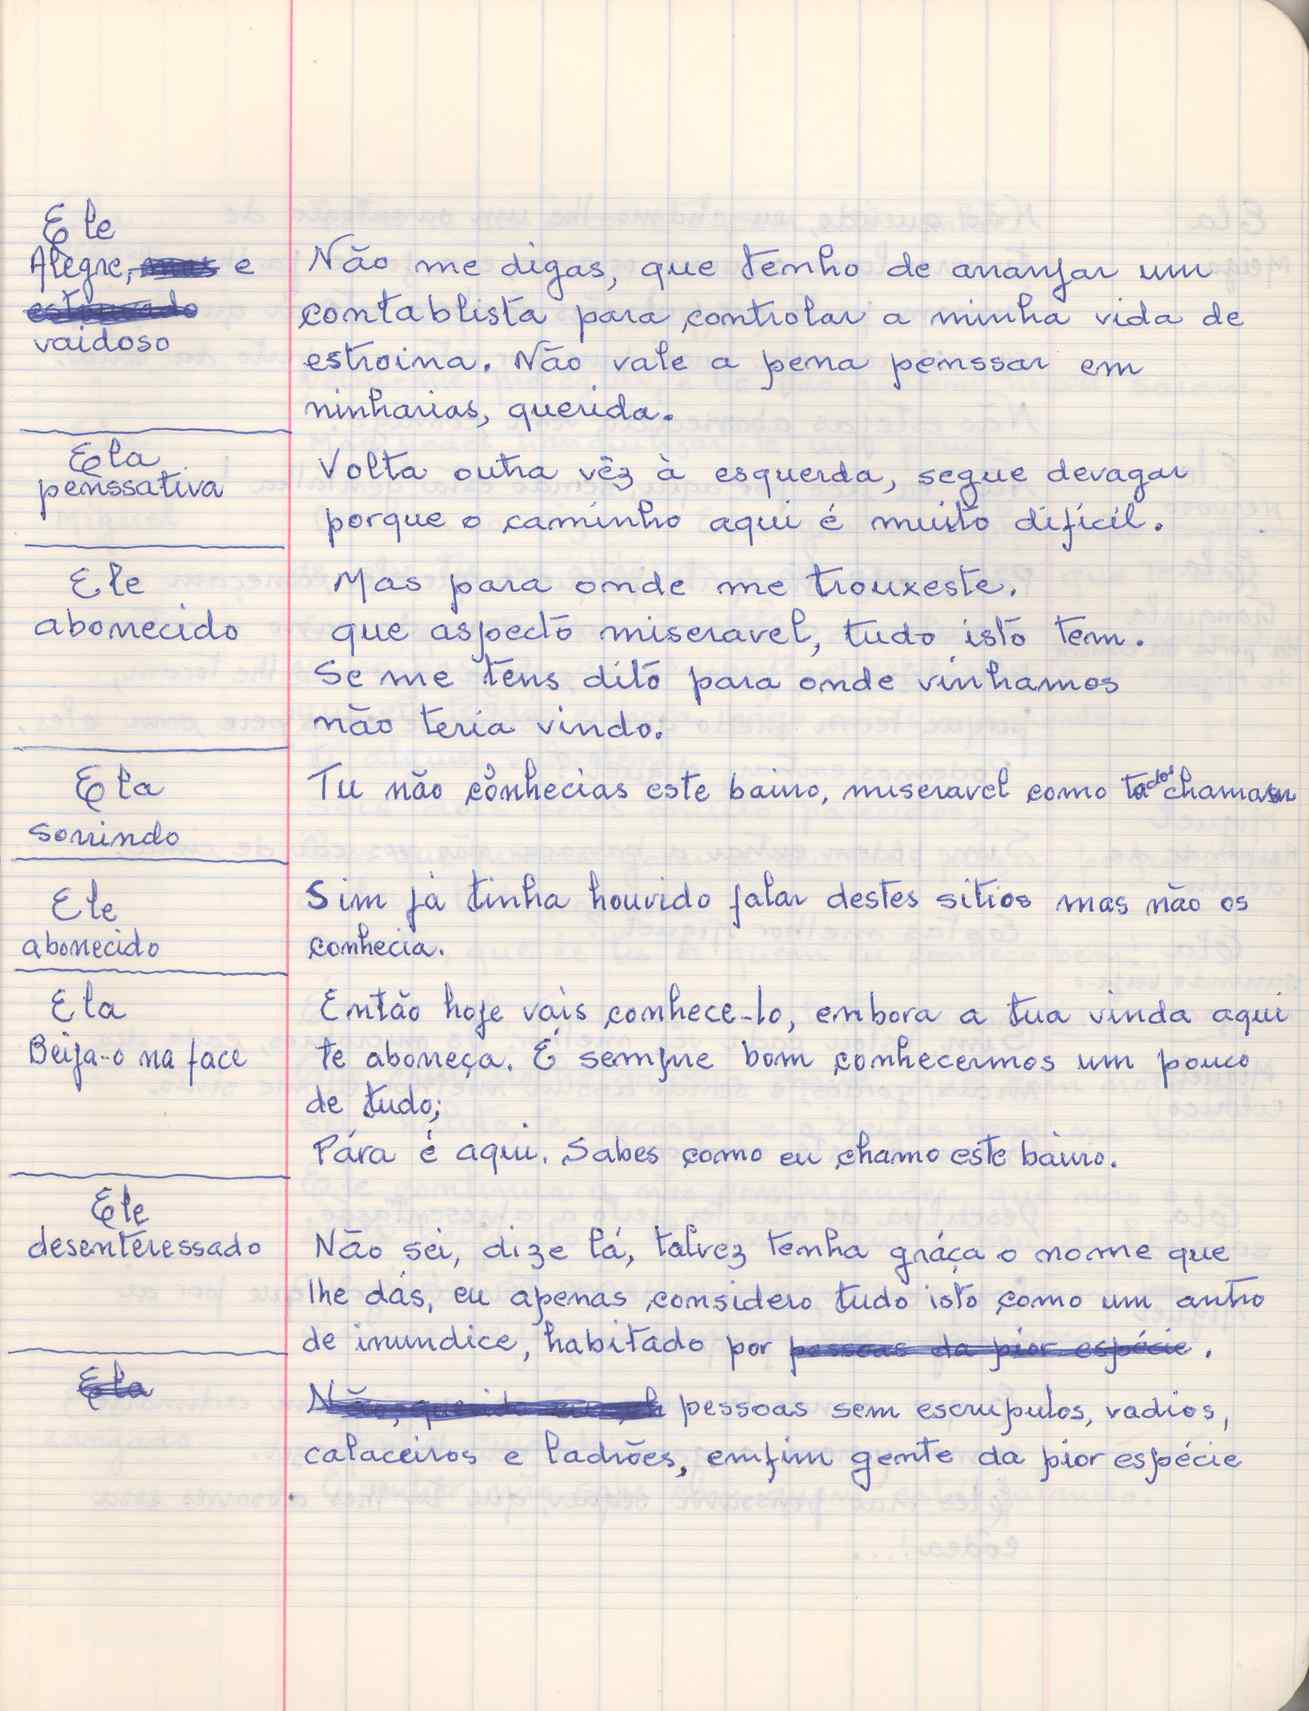 Ele
Alegre, mas e
estouvado
vaidoso
Não me digas, que tenho de arranjar um
contablista para controlar a minha vida de
estroina. Não vale a pena penssar em
ninharias, querida.
Ela
penssativa
Volta outra vêz à esquerda, segue devagar
porque o caminho aqui é muito difícil.
Ele
aborrecido
Mas para onde me trouxeste.
que aspecto miseravel, tudo isto tem.
Se me tens dito para onde vinhamos
não teria vindo.
Ela
sorrindo
Tu não conhecias este bairro, miseravel como todos chamam
Ele
aborrecido
Sim já tinha houvido falar destes sitios mas não os
conhecia.
Ela
Beija-o na face
Então hoje vais conhece-lo, embora a tua vinda aqui
te aborreça. É sempre bom conhecermos um pouco
de tudo;
Pára é aqui. Sabes como eu chamo este bairro.
Ele
desenteressado
Não sei, dize lá, talvez tenha gráça o nome que
lhe dás, eu apenas considero tudo isto como um antro
de inundice, habitado por pessoas da pior espécie.
Ela
Não, querido pessoas sem escrupulos, vadios,
calaceiros e ladrões, emfim gente da pior espécie